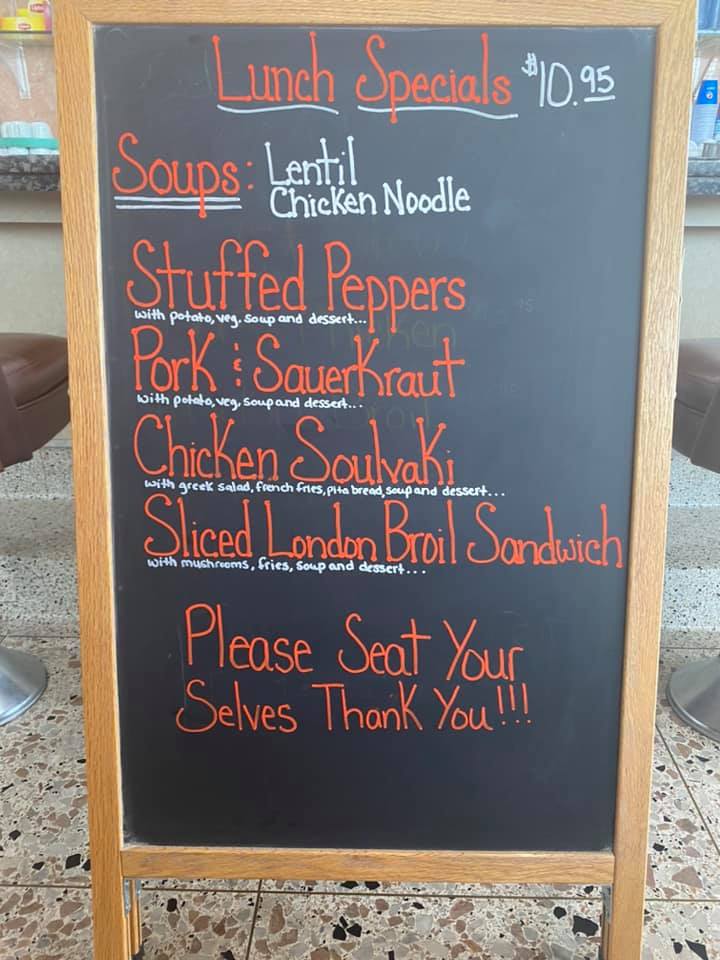 Lunch Specials $10.95
Soups: Lentil
Chicken Noodle
Stuffed Peppers
with potato, veg. soup and dessert...
Pork & Sauerkraut
with potato, veg, soup and dessert...
Chicken Soulvaki
with greek salad, french fries, pita bread, soup and dessert...
Sliced London Broil Sandwich
with mushrooms, fries, soup and dessert...
Please Seat Your
Selves Thank You!!!